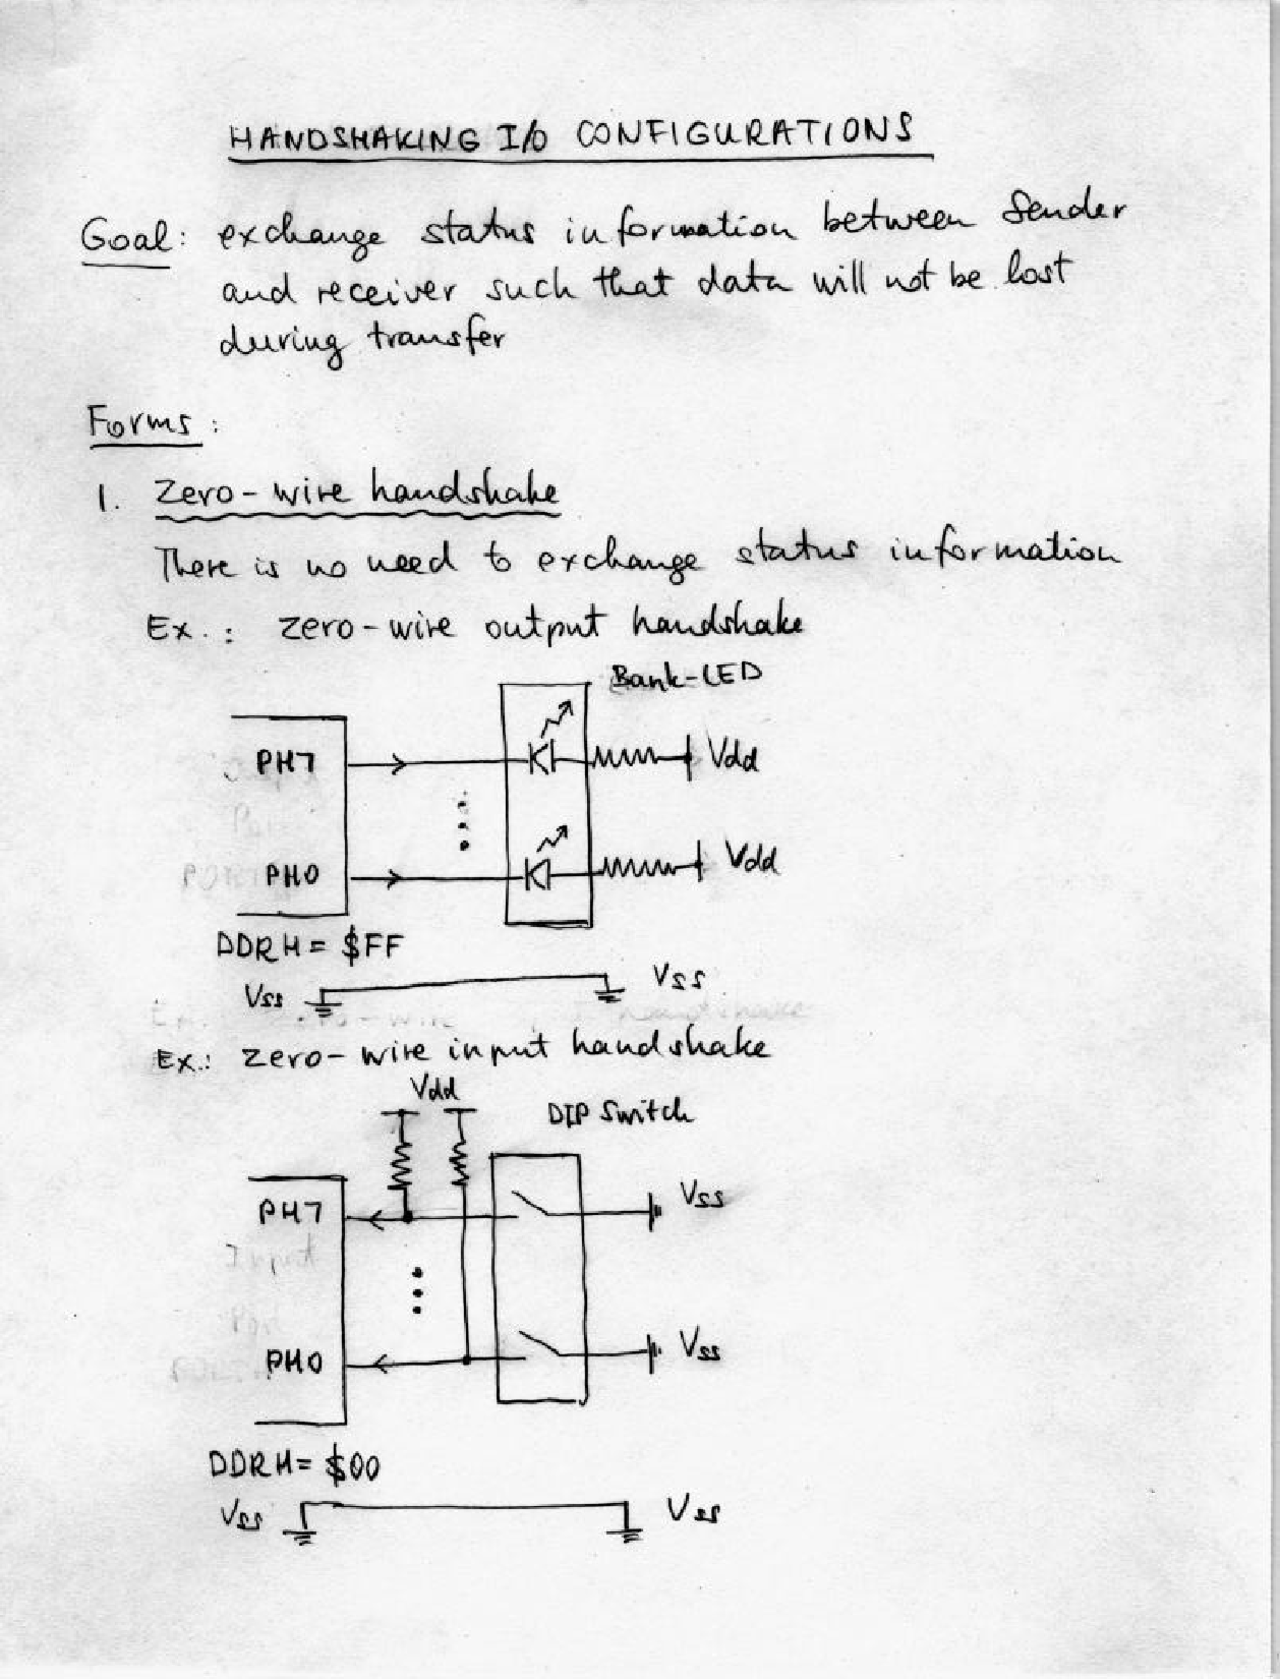 HANDSHAKING I/O CONFIGURATIONS
Goal: exchange status information between Sender
and receiver such that data will not be lost
during transfer
Forms:
1. Zero-wire handshake
There is no need to exchange status information
Ex.: zero-wire output handshake
Bank-LED
PH7
Vdd
PH0
Vdd
DDRH = $FF
Vss
Vss
Ex.: zero-wire input handshake
Vdd
DIP Switch
PH7
Vss
PH0
Vss
DDRH = $00
Vss
Vss